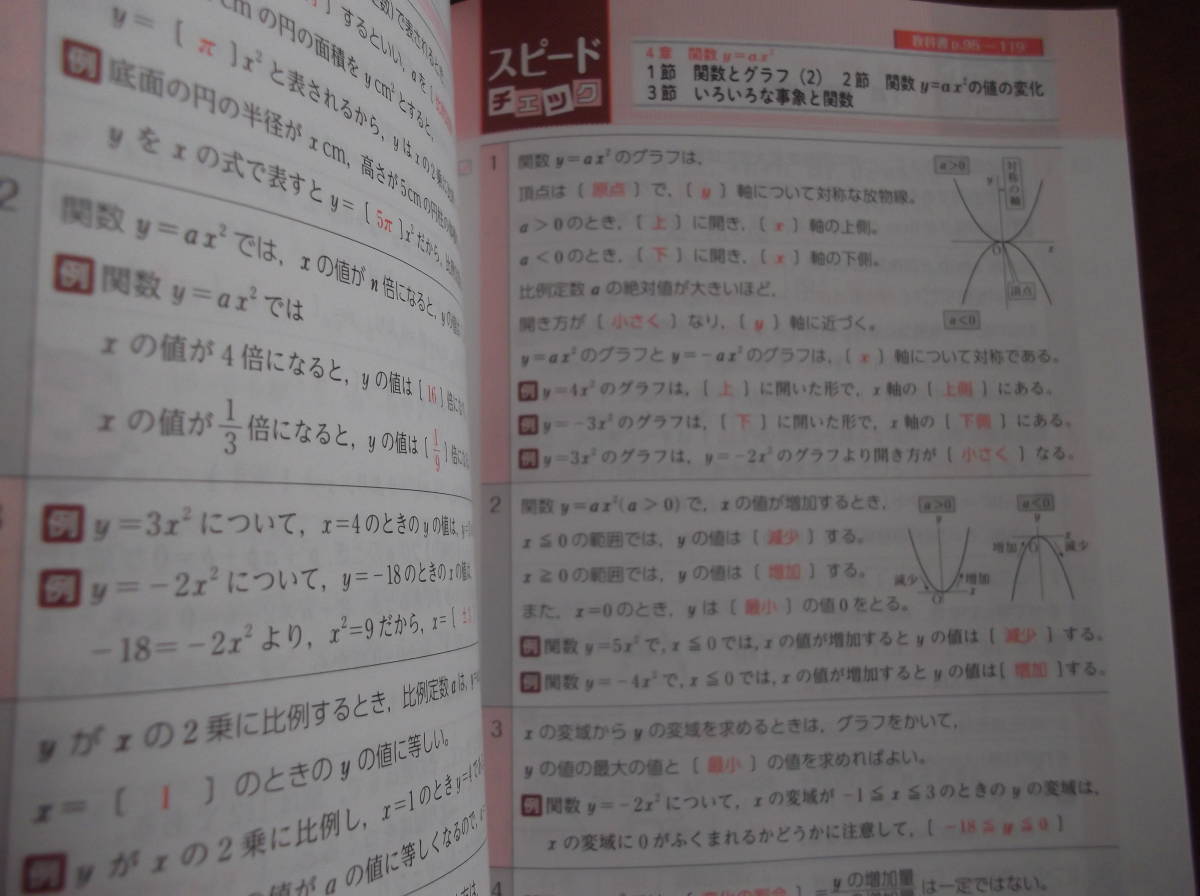 数)で表されるとき,
】するといい, aを〔
cmの円の面積をy cm²とすると,
y=〔 π 〕x²と表されるから, yはxの2乗に
例 底面の円の半径がx cm, 高さが5cmの円柱の
yをxの式で表すとy=〔 5π 〕x²だから,
2
関数y=ax²では, xの値がn倍になると, yの値は
例 関数y=ax²では
xの値が4倍になると, yの値は〔 16 〕倍に
xの値が1/3倍になると, yの値は〔 1/9 〕倍に
例 y=3x²について, x=4のときのyの値は,
例 y=-2x²について, y=-18のときのxの値は
-18=-2x²より, x²=9だから, x=〔
yがxの2乗に比例するとき, 比例定数aは,
x=〔 1 〕のときのyの値に等しい。
例 yがxの2乗に比例し, x=1のときy=4
の値がaの値に等しくなるので,
スピード
チェック
教科書p.95~119
4章 関数y=ax²
1節 関数とグラフ(2) 2節 関数y=ax²の値の変化
3節 いろいろな事象と関数
1 関数y=ax²のグラフは,
頂点は〔 原点 〕で,〔 y 〕軸について対称な放物線。
a>0のとき,〔 上 〕に開き,〔 x 〕軸の上側。
a<0のとき,〔 下 〕に開き,〔 x 〕軸の下側。
比例定数aの絶対値が大きいほど,
開き方が〔 小さく 〕なり,〔 y 〕軸に近づく。
y=ax²のグラフとy=-ax²のグラフは,〔 x 〕軸について対称である。
例 y=4x²のグラフは,〔 上 〕に開いた形で, x軸の〔 上側 〕にある。
例 y=-3x²のグラフは,〔 下 〕に開いた形で, x軸の〔 下側 〕にある。
例 y=3x²のグラフは, y=-2x²のグラフより開き方が〔 小さく 〕なる。
a>0
y
対称の軸
O
x
頂点
a<0
2 関数y=ax²(a>0)で, xの値が増加するとき,
x≦0の範囲では, yの値は〔 減少 〕する。
x≧0の範囲では, yの値は〔 増加 〕する。
また, x=0のとき, yは〔 最小 〕の値0をとる。
例 関数y=5x²で, x≦0では, xの値が増加するとyの値は〔 減少 〕する。
例 関数y=-4x²で, x≦0では, xの値が増加するとyの値は〔 増加 〕する。
a>0
y
減少
増加
O
x
a<0
y
増加
O
x
減少
3 xの変域からyの変域を求めるときは, グラフをかいて,
yの値の最大の値と〔 最小 〕の値を求めればよい。
例 関数y=-2x²について, xの変域が-1≦x≦3のときのyの変域は,
xの変域に0がふくまれるかどうかに注意して,〔 -18≦y≦0 〕
4
yの増加量
は一定ではない。